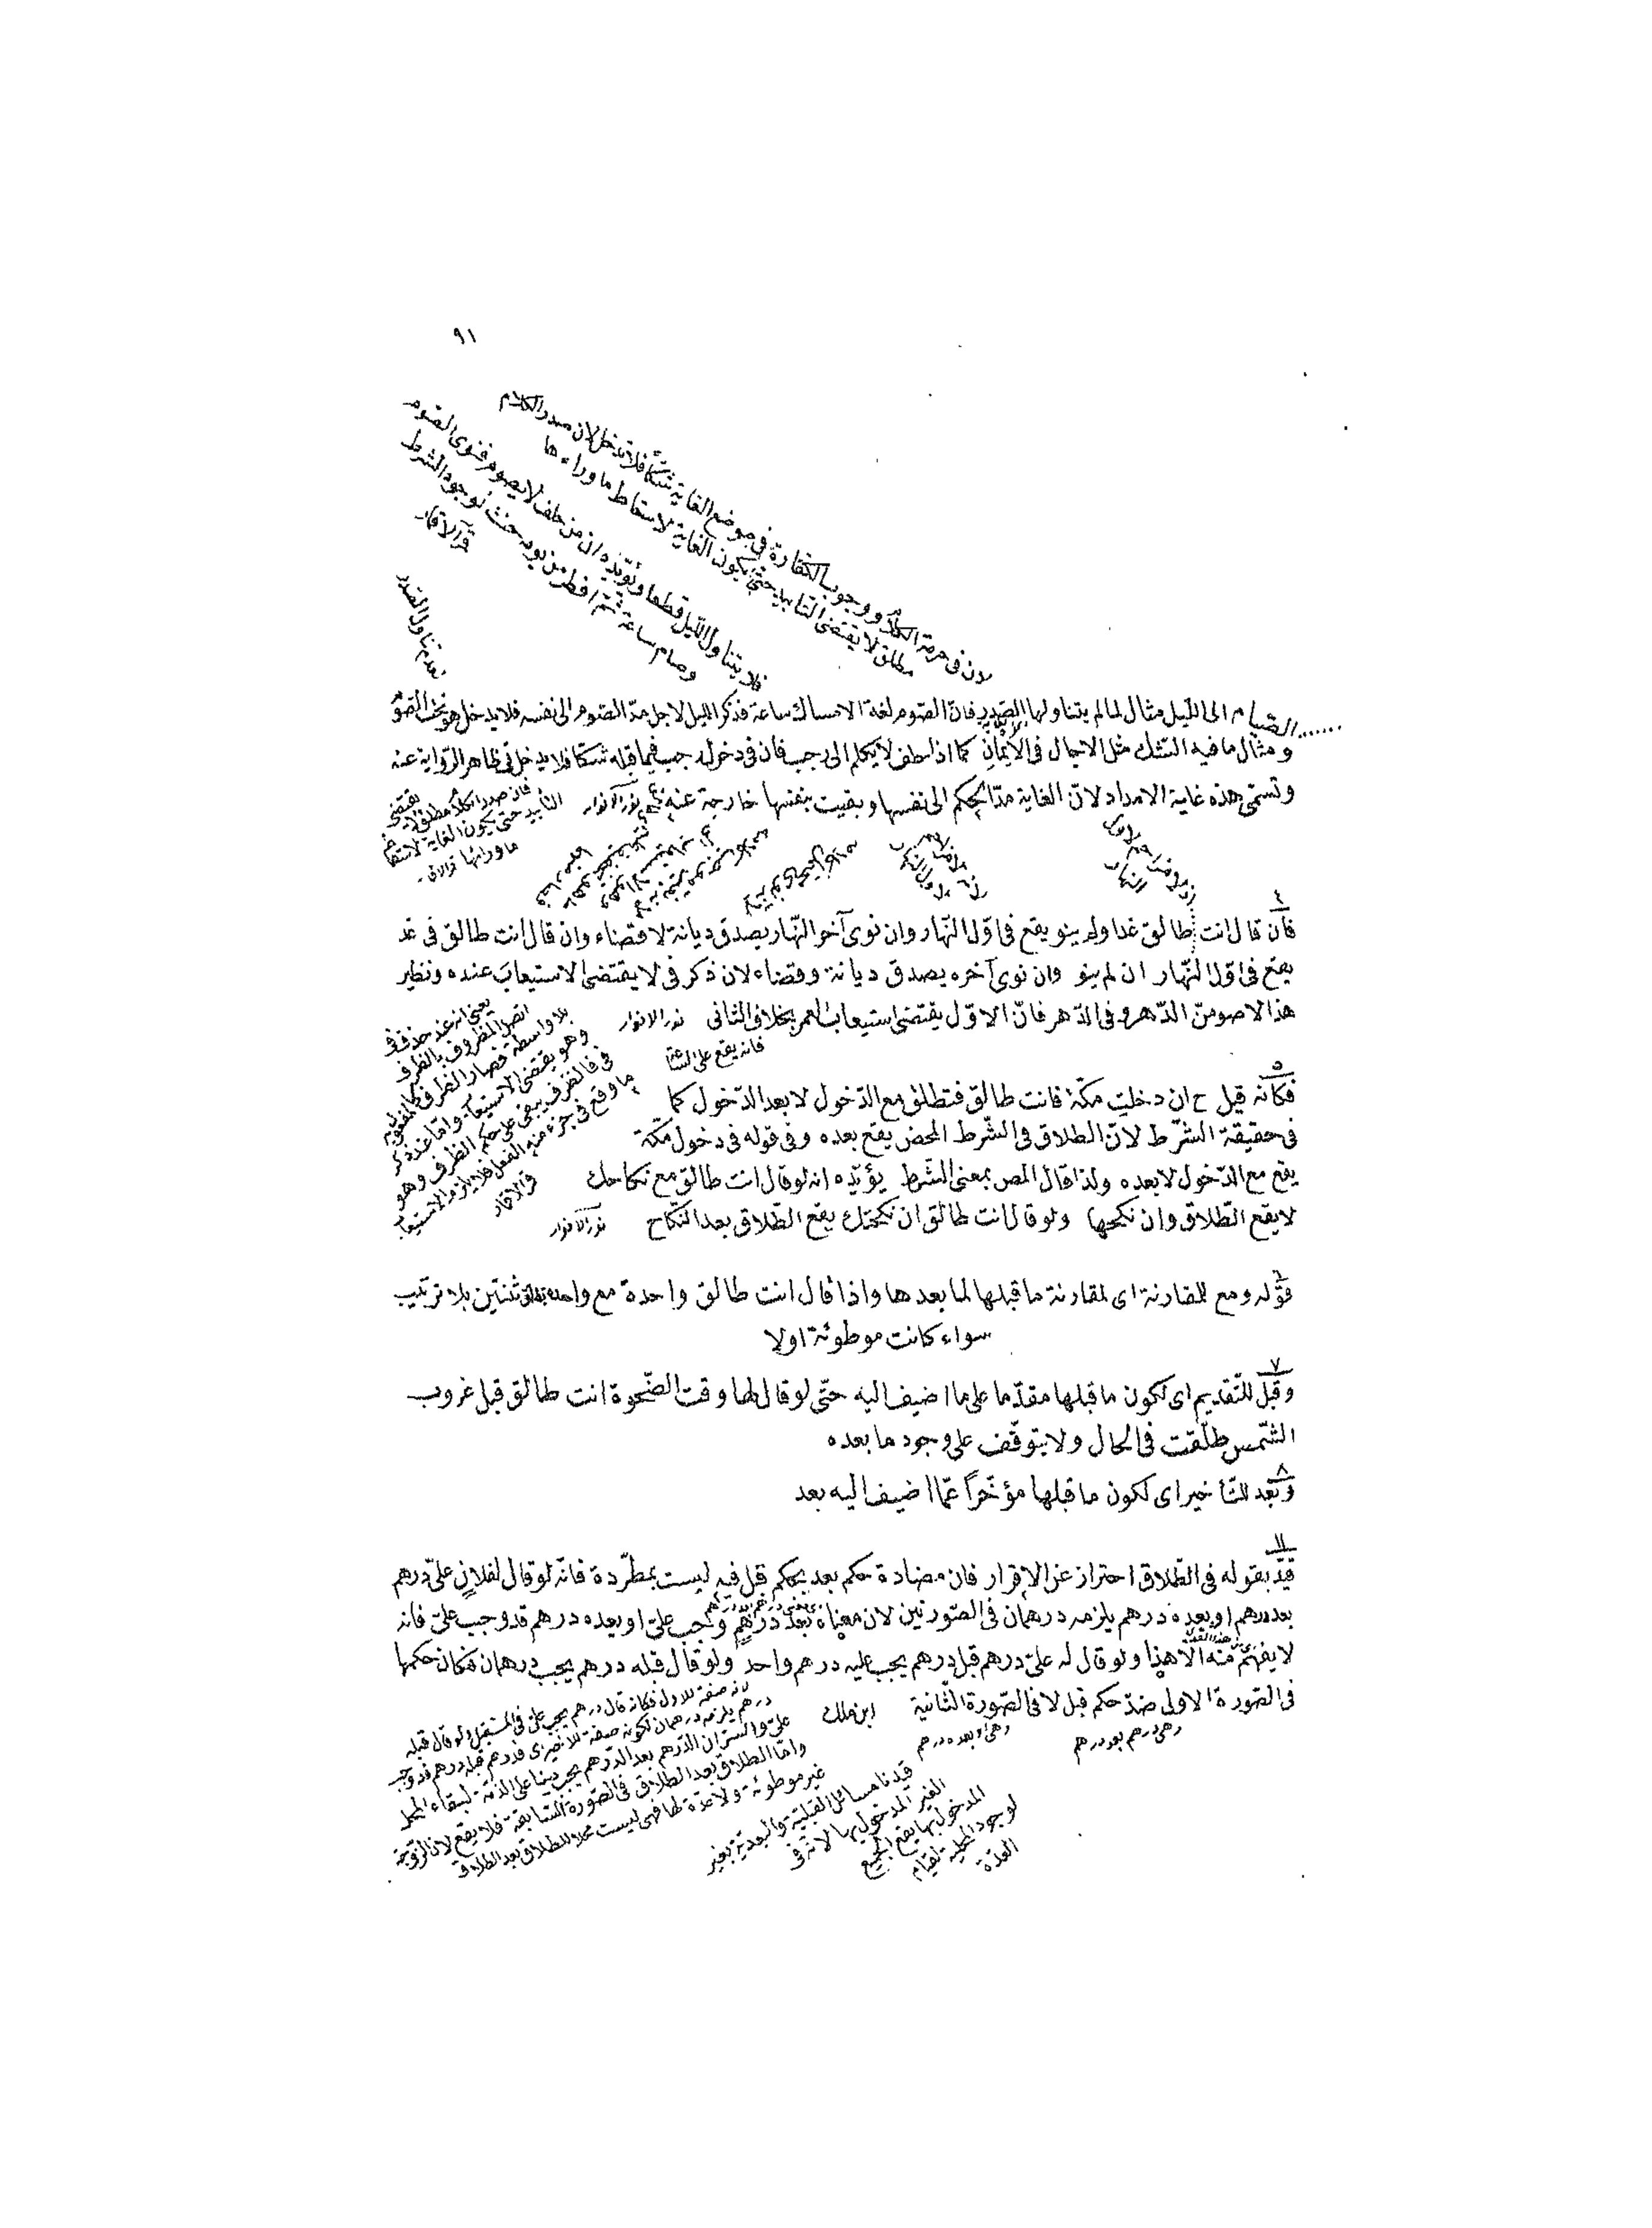 ٩١
لان فى حرمة الكلام و وجوب الكفارة فى موضع الغاية شكا فلا تدخل لان صدر الكلام
مطلق لا يقتضى التأبيد حتى يكون الغاية لاسقاط ما وراءها
فلا يتناول الليل قطعا ويؤيده ان من حلف لا يصوم فنوى الصوم
وصام ساعة ثم افطر من يومه حنث لوجود الشرط
قمر الاقمار
لعدم تناول الصدر
...... الصيام الى الليل مثال لما لم يتناولها الصدر فان الصوم لغة الامساك ساعة فذكر الليل لاجل مدّ الصوم الى نفسه فلا يدخل هو تحت الصوم
و مثال ما فيه الشك مثل الآجال فى الأيمان كما اذا حلف لا يكلم الى رجب فان فى دخول رجب فيما قبله شكا فلا يدخل فى ظاهر الرواية عنه
و تسمى هذه غاية الامداد لان الغاية مدّ الحكم الى نفسها و بقيت بنفسها خارجة عنه نور الانوار
فان صدر الكلام مطلق لا يقتضى
التأبيد حتى يكون الغاية لاسقاط
ما ورائها قمر الاق
٤
فان قال انت طالق غدا ولم ينو يقع فى اوّل النّهار وان نوى آخر النّهار يصدق ديانة لا قضاء وان قال انت طالق فى غد
يقع فى اوّل النّهار ان لم ينو وان نوى آخره يصدق ديانة وقضاء لان ذكر فى لا يقتضى الاستيعاب عنده ونظير
هذا لاصومنّ الدّهر و فى الدّهر فانّ الاوّل يقتضى استيعاب العمر بخلاف الثانى نور الانوار
فانه يقع على الساعة
يعنى انه عند حذف فى
اتصل المظروف بالظرف
بلا واسطة فصار الظرف كالمفعول به
وهو يقتضى الاستيعاب واما عند ذكر
فى فالظرف يبقى على حكم الظرف وهو
ما وقع فى جزء منه الفعل فلا يلزم الاستيعاب
قمر الاقمار
٥
فكأنه قيل ح ان دخلت مكّة فانت طالق فتطلق مع الدّخول لا بعد الدّخول كما
فى حقيقة الشّرط لانّ الطلاق فى الشّرط المحض يقع بعده وفى قوله فى دخول مكّة
يقع مع الدّخول لا بعده ولذا قال المص بمعنى الشّرط يؤيّده انه لو قال انت طالق مع نكاحك
لا يقع الطّلاق وان نكحها ولو قال انت طالق ان نكحتك يقع الطّلاق بعد النّكاح نور الانوار
٦
قوله و مع للمقارنة اى لمقارنة ما قبلها لما بعدها واذا قال انت طالق واحدة مع واحدة تطلق ثنتين بلا ترتيب
سواء كانت موطوئة اولا
٧
وقبل للتّقديم اى لكون ما قبلها مقدّما على ما اضيف اليه حتّى لو قال لها وقت الضّحوة انت طالق قبل غروب
الشّمس طلّقت فى الحال ولا يتوقّف على وجود ما بعده
٨
وبعد للتّأخير اى لكون ما قبلها مؤخّراً عمّا اضيف اليه بعد
١١
قيّد بقوله فى الطّلاق احتراز عن الاقرار فان مضادة حكم بعد بحكم قبل فيه ليست بمطّردة فانّه لو قال لفلان علىّ درهم
بعد درهم او بعده درهم يلزمه درهمان فى الصّورتين لان معناه بعد درهم وجب علىّ او بعده درهم قد وجب علىّ فانه
لا يفهم منه الا هذا ولو قال له علىّ درهم قبل درهم يجب عليه درهم واحد ولو قال قبله درهم يجب درهمان فكان حكمها
فى الصّورة الاولى ضدّ حكم قبل لا فى الصّورة الثّانية ابن ملك
وهى درهم بعد درهم
وهى او بعده درهم
لانه صفة للاول فكانه قال درهم يجب علىّ فى المستقبل ولو قال قبله
درهم يلزمه درهمان لكونه صفة للاخير اى فدرهم قبله درهم قد وجب
علىّ والسرّ ان الدّرهم بعد الدّرهم يجب دينا على الذمّة لبقاء المحل
وامّا الطلاق بعد الطلاق فى الصّورة السّابقة فلا يقع لان الزوجة
غير موطوئة ولا عدّة لها فهى ليست محلا للطلاق بعد الطلاق
قيدنا مسائل القبلية والبعدية بغير
الغير المدخول بها لانه فى
المدخول بها يقع الجميع
لوجود المحلية لقيام
العدّة